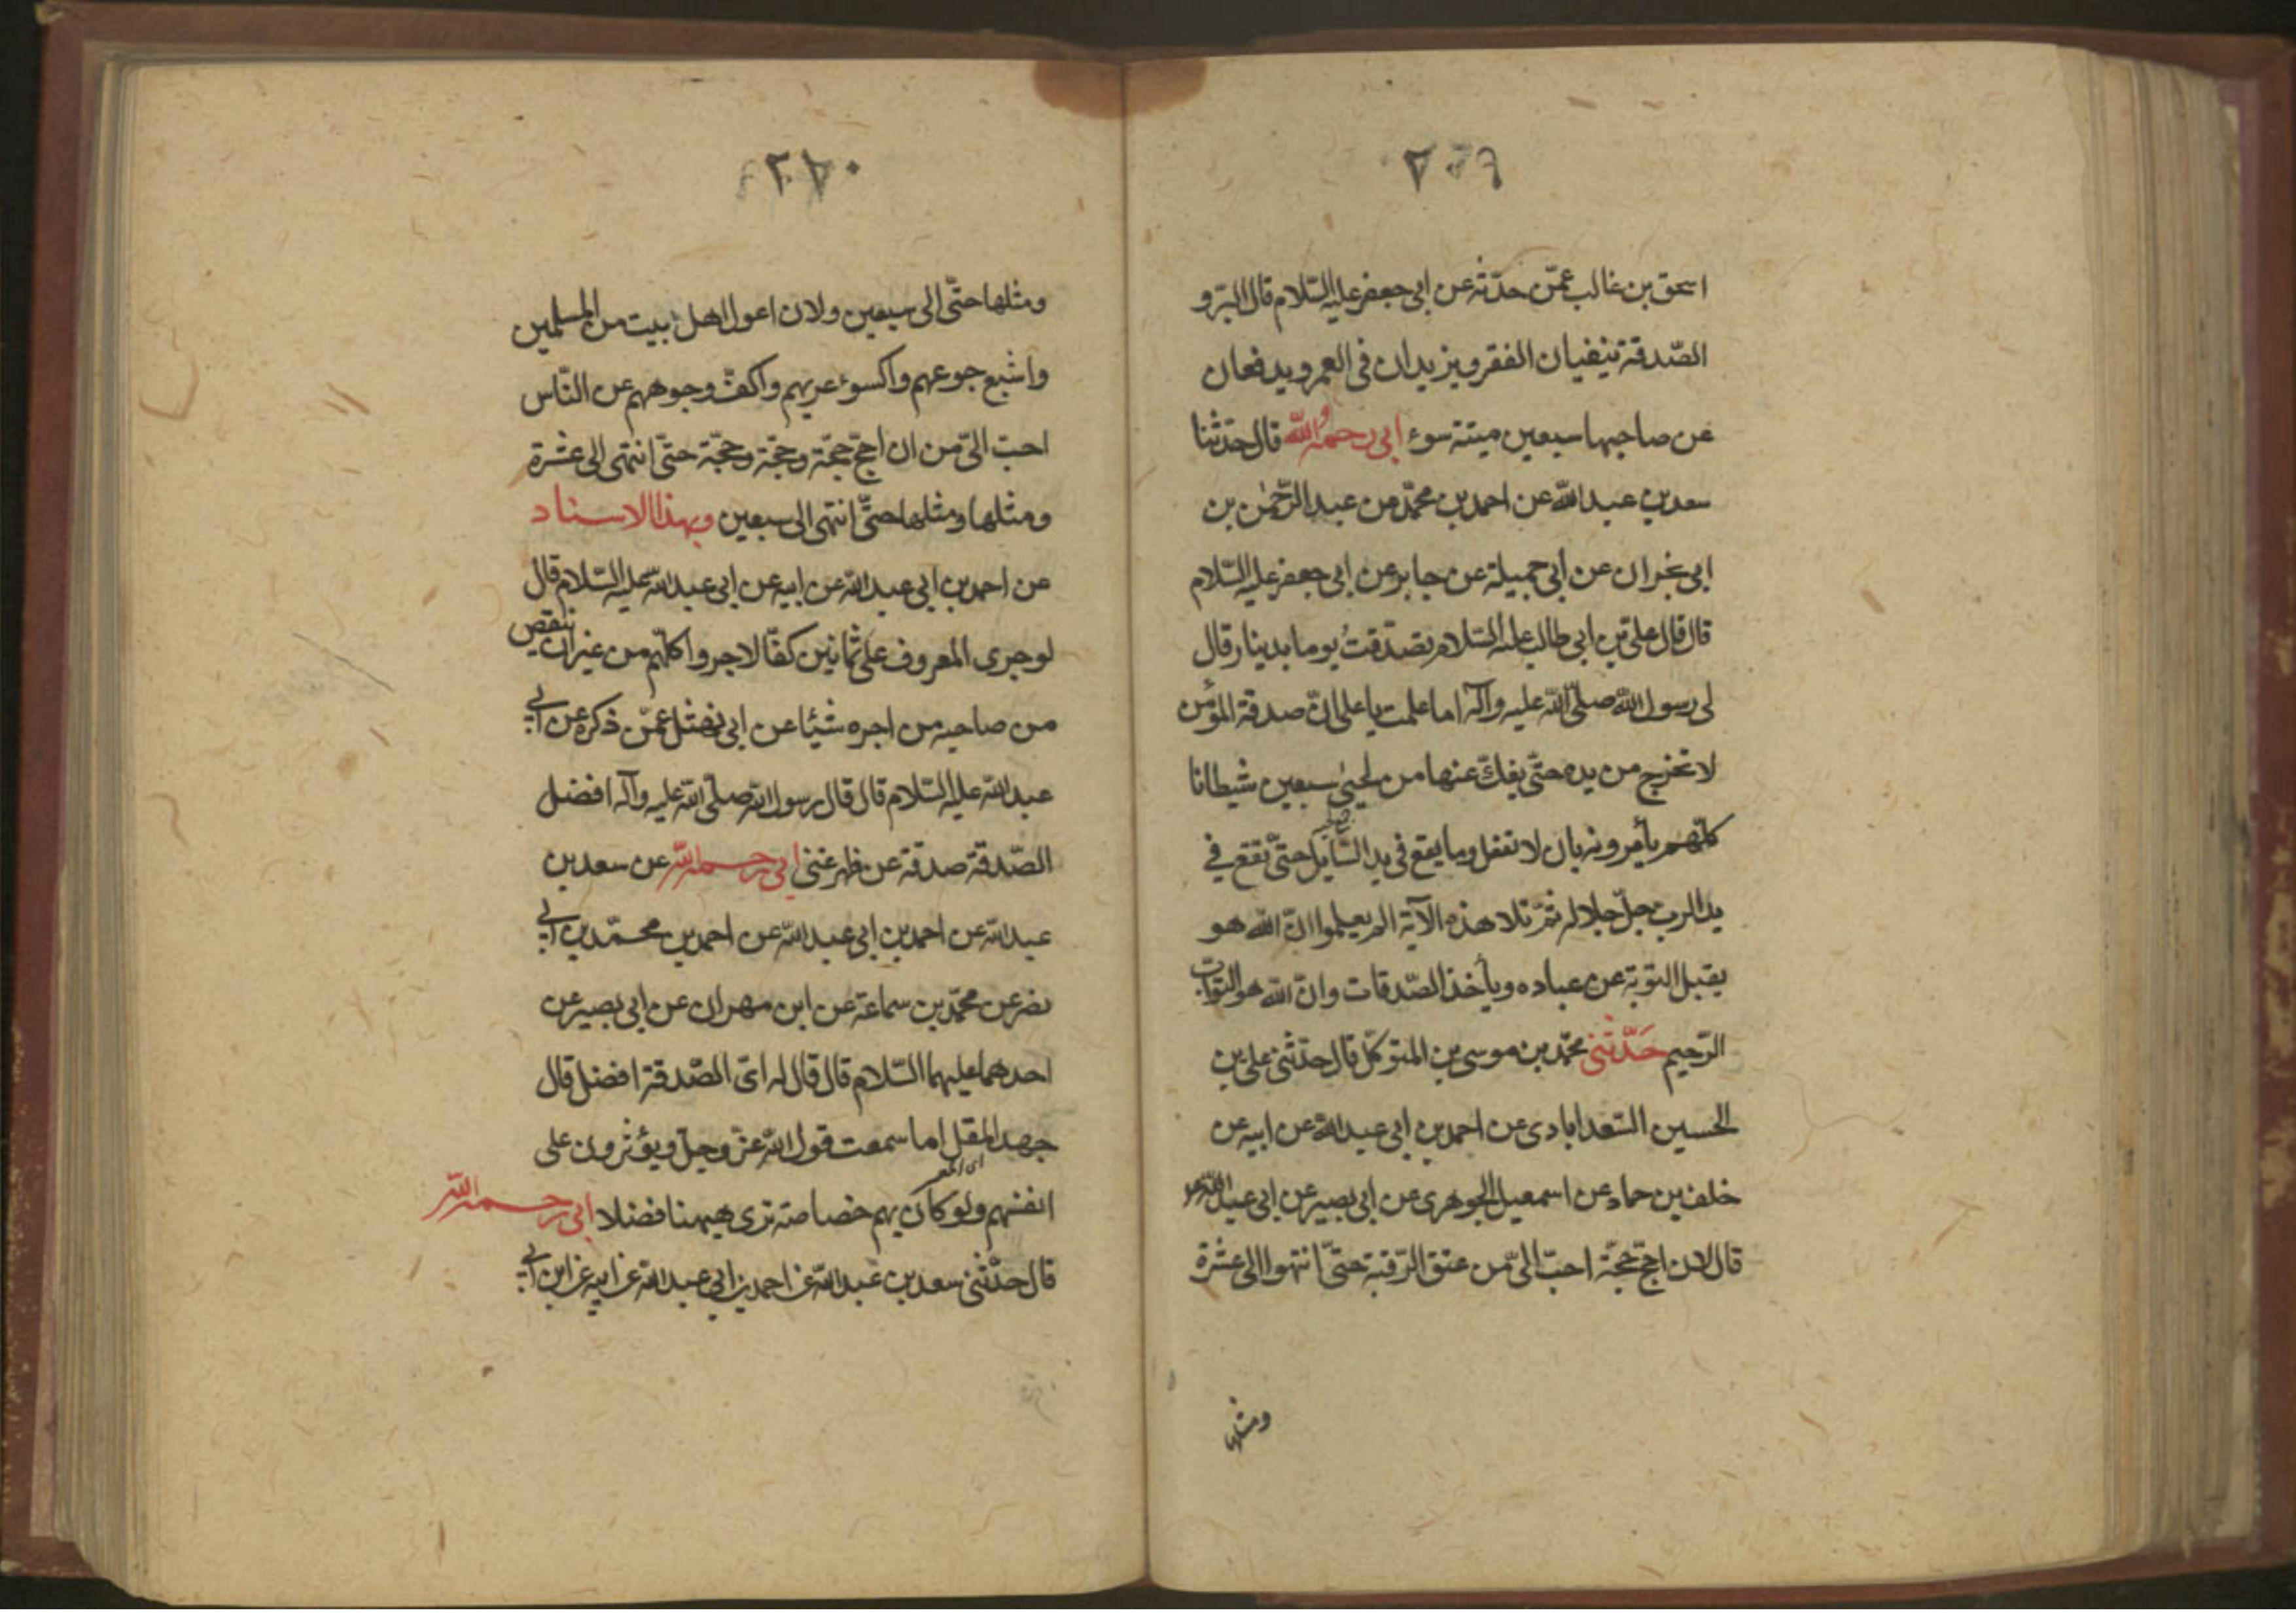 اسحق بن غالب عمّن حدّثه عن ابى جعفر عليه السّلام قال البرّ و
الصّدقة ينفيان الفقر ويزيدان فى العمر ويدفعان
عن صاحبها سبعين ميتة سوء ابى رحمه الله قال حدّثنا
سعد بن عبد الله عن احمد بن محمّد من عبد الرّحمٰن بن
ابى نجران عن ابى جميلة عن جابر عن ابى جعفر عليه السّلام
قال قال على بن ابى طالب عليه السّلام تصدّقتُ يوما بدينار قال
لى رسول الله صلّى الله عليه وآله اما علمت يا على انّ صدقة المؤمن
لا تخرج من يده حتّى يفكّ عنها من لحيى سبعين شيطانا
كلّهم يأمره بان لا تفعل وما يقع فى يد السّايل حتّى تقع في
يد الرب جلّ جلاله ثمّ تلا هذه الآية الم يعلموا انّ الله هو
يقبل التوبة عن عباده ويأخذ الصّدقات وانّ الله هو التوّاب
الرّحيم حَدّثنى محمّد بن موسى بن المتوكّل قال حدّثنى على بن
الحسين السّعدابادى عن احمد بن ابى عبد الله عن ابيه عن
خلف بن حماد عن اسمعيل الجوهرى عن ابى بصير عن ابى عبد الله
قال لان احجّ حجّة احبّ الىّ من عتق الرّقبة حتّى انتهوا الى عشرة
ومثلها
٢٨٠
ومثلها حتّى الى سبعين ولان اعول اهل بيت من المسلمين
واشبع جوعهم واكسوء عريهم واكفّ وجوههم عن النّاس
احبّ الىّ من ان احجّ حجّة وحجّة وحجّة حتّى انتهى الى عشرة
ومثلها ومثلها حتّى انتهى الى سبعين وبهذا الاسناد
عن احمد بن ابى عبد الله عن ابيه عن ابى عبد الله عليه السّلام قال
لو جرى المعروف على ثمانين كفّا لاجروا كلّهم من غير ان ينقص
من صاحبه من اجره شيئا عن ابى نهشل عمّن ذكره عن ابي
عبد الله عليه السّلام قال قال رسول الله صلّى الله عليه وآله افضل
الصّدقة صدقة عن ظهر غنى ابى رحمه الله عن سعد بن
عبد الله عن احمد بن ابى عبد الله عن احمد بن محمّد بن ابي
نصر عن محمّد بن سماعة عن ابن مهران عن ابى بصير عن
احدهما عليهما السّلام قال قال له اىّ الصّدقة افضل قال
جهد المقل اما سمعت قول الله عزّ وجلّ ويؤثرون على
انفسهم ولو كان بهم خصاصة ترى هيهنا فضلا ابى رحمه الله
قال حدّثنى سعد بن عبد الله عن احمد بن ابى عبد الله عن ابيه عن ابن ابي